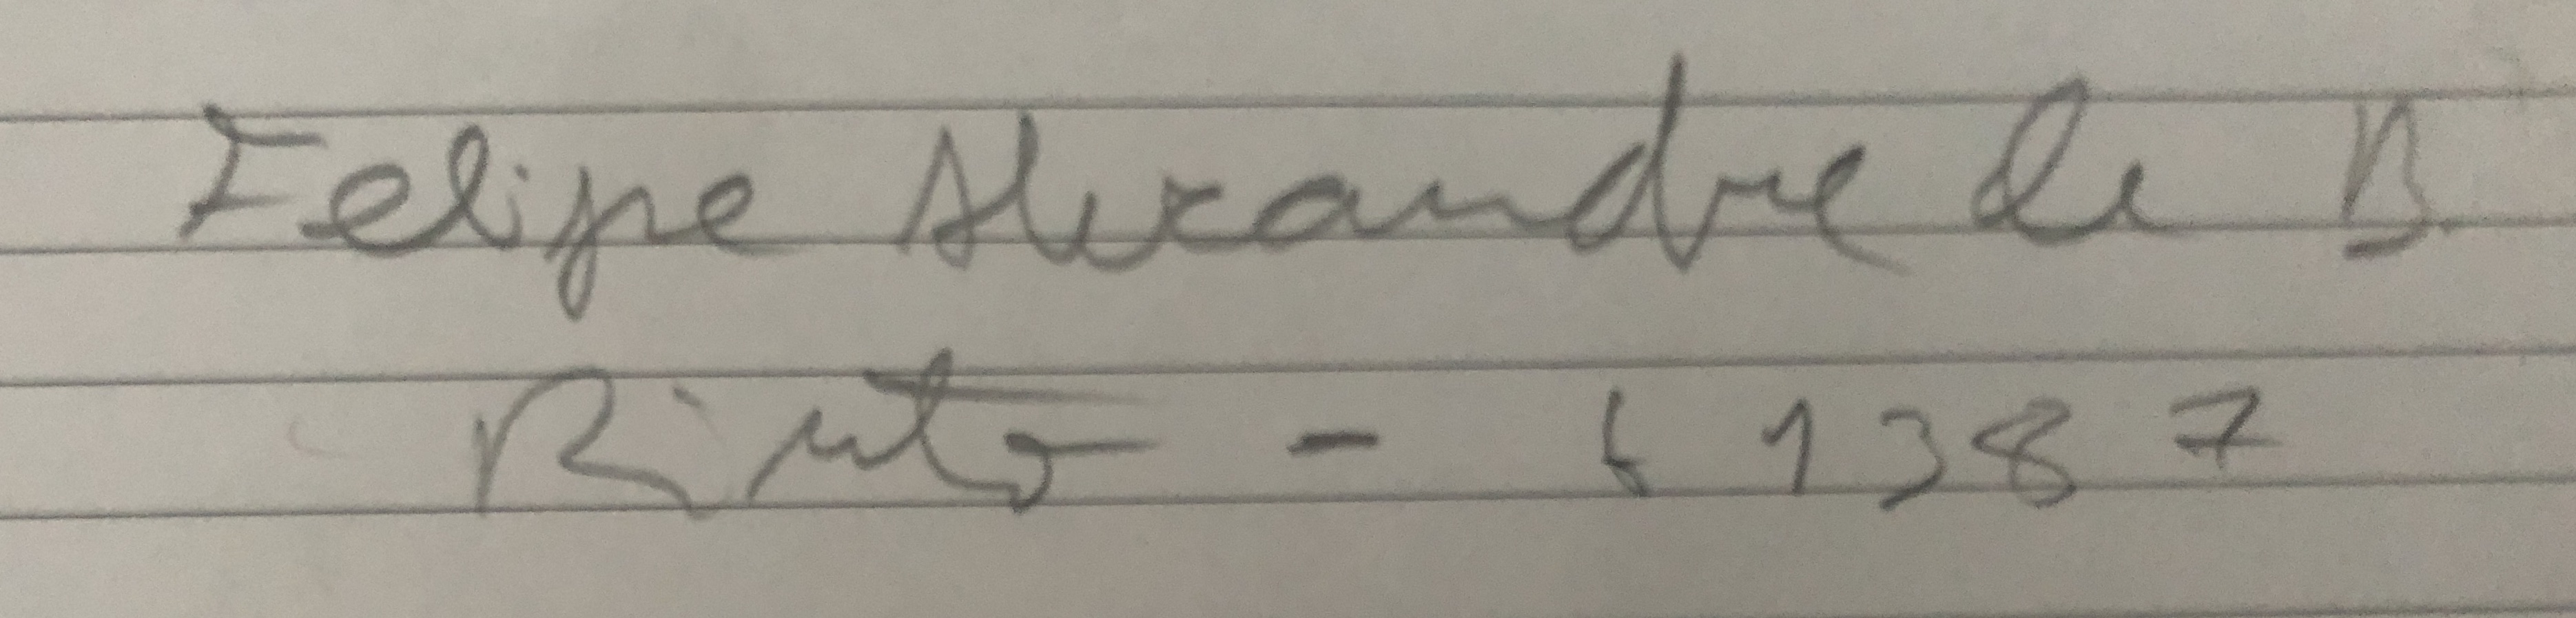 Felipe Alexandre de B.
Pinto - 61387